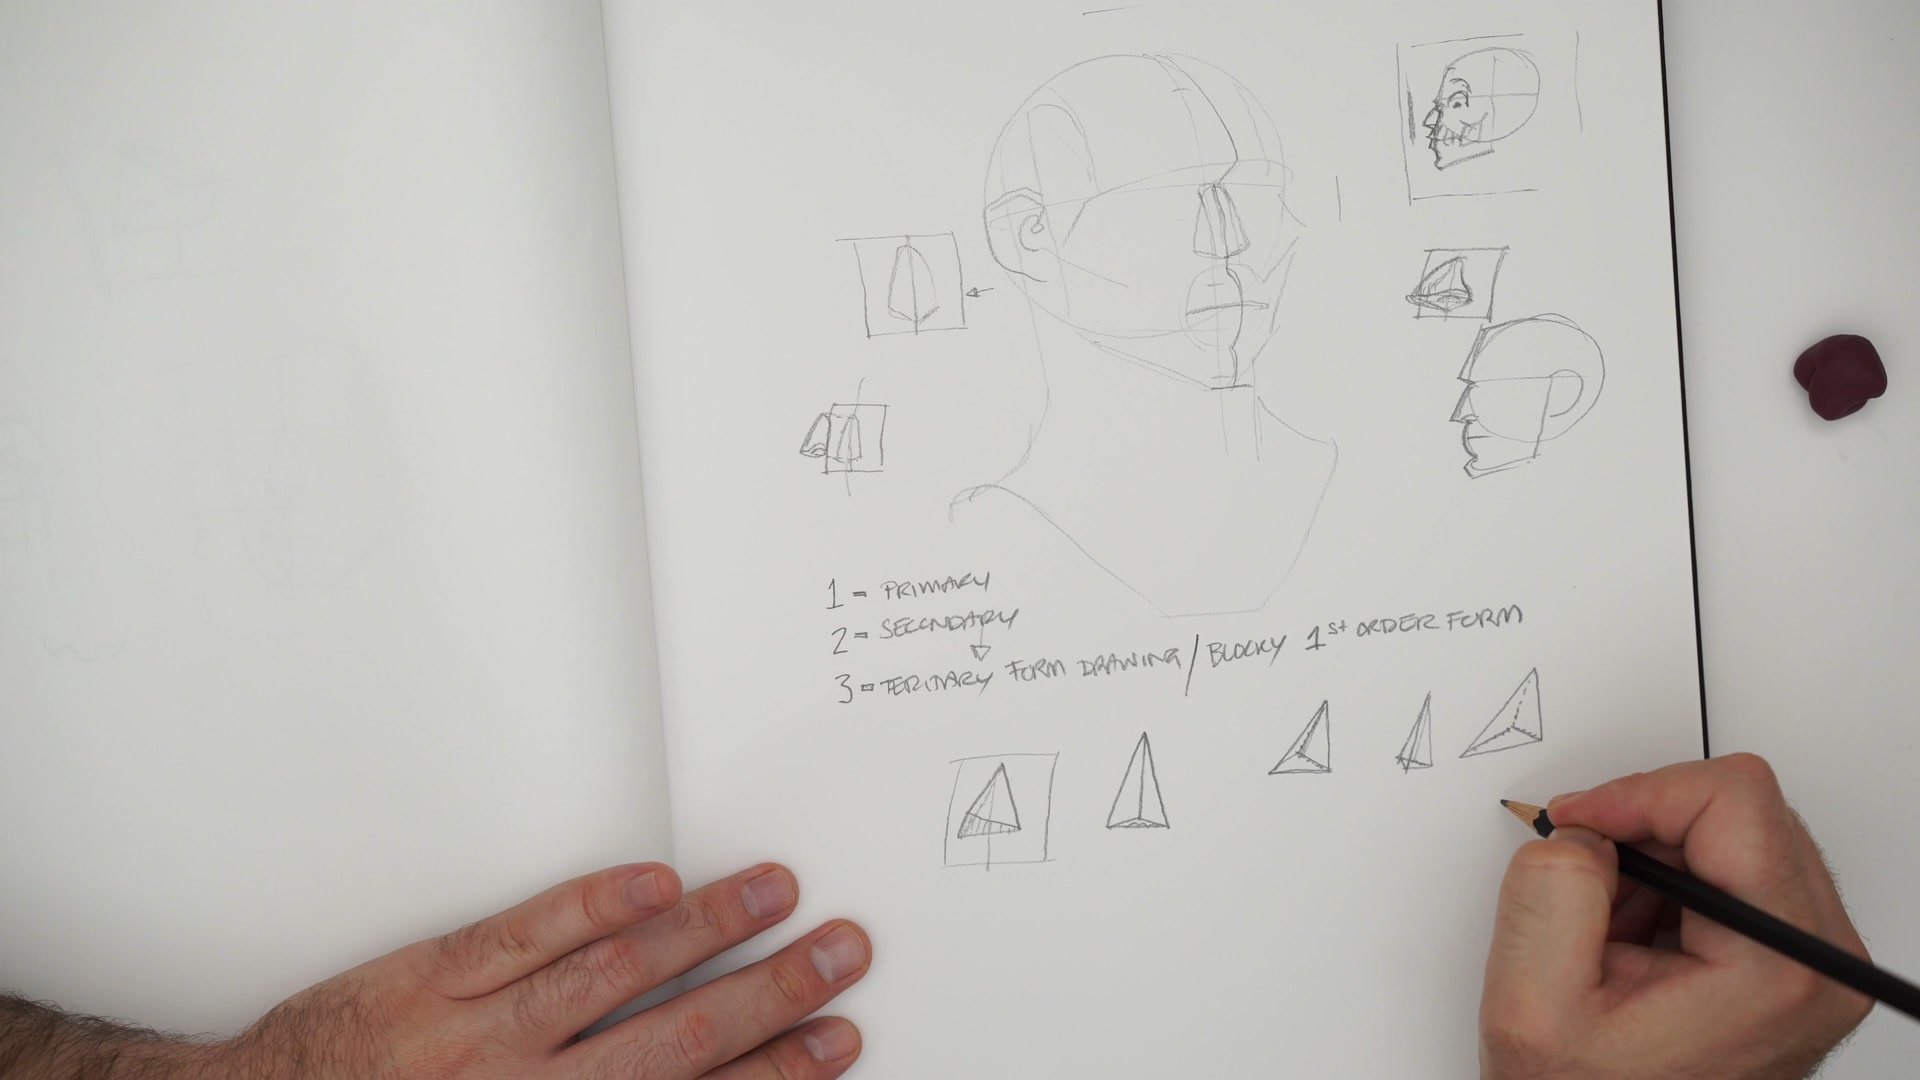 1 = PRIMARY
2 = SECONDARY
3 = TERITARY FORM DRAWING / BLOCKY 1st ORDER FORM